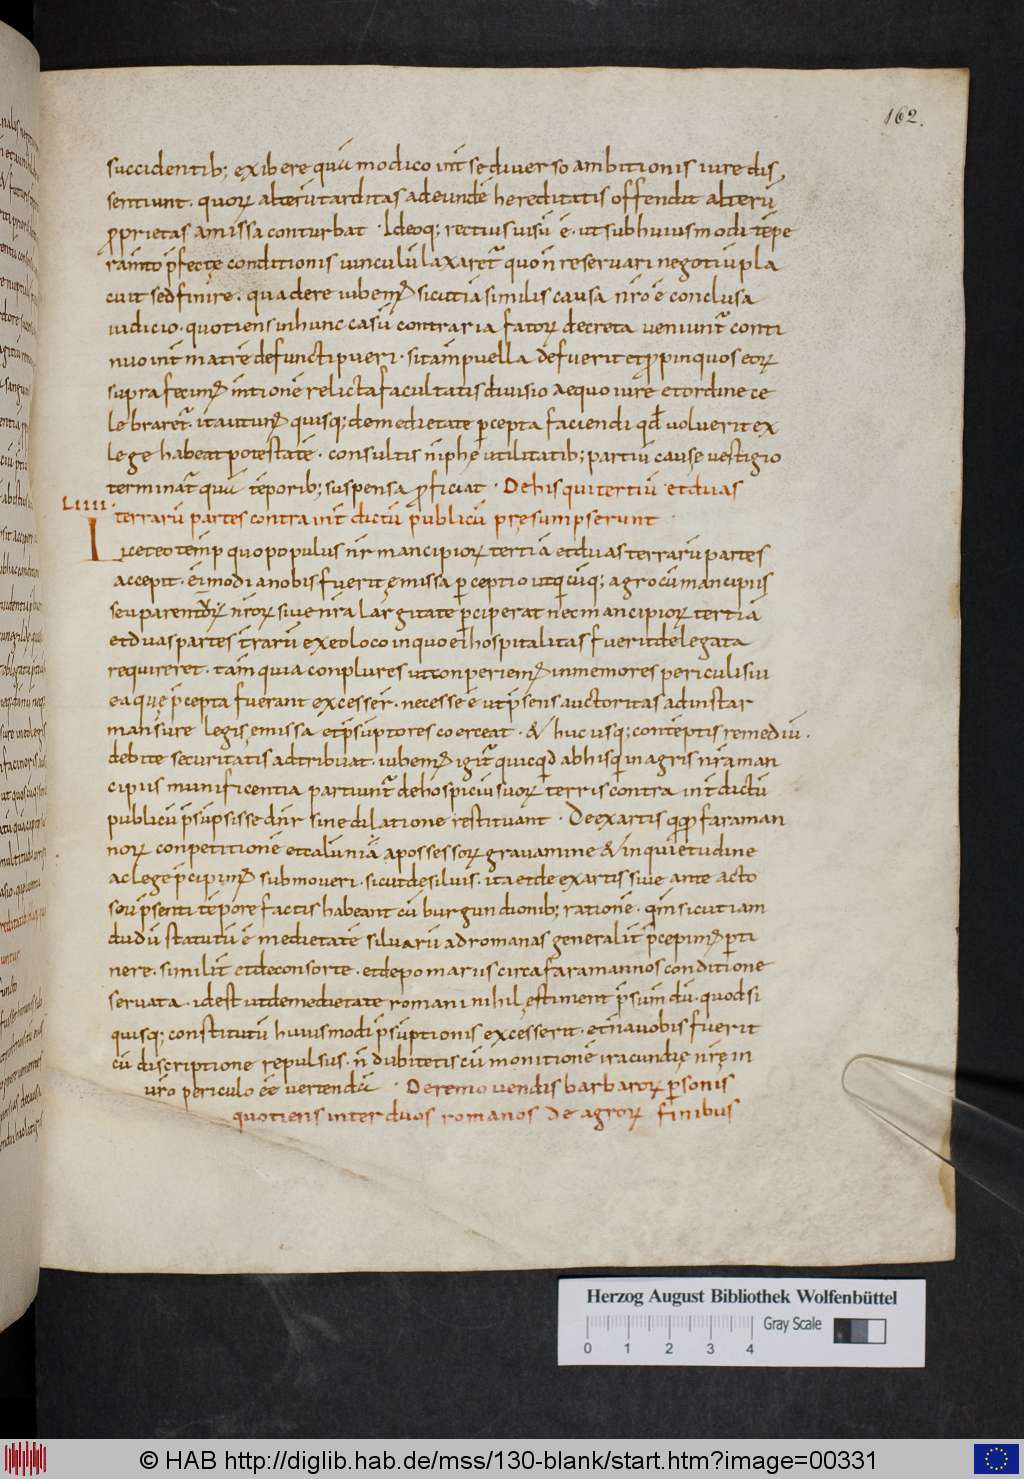 162.
succidentib; exibere quū modico int̄ se diverso ambitionis iure dis
sentiunt · quoꝝ alterū tarditas adeundē hereditatis offendit alterū
ꝓprietas amissa conturbat · Ideoq; rectius visū ē · ut sub huiusmodi tēpe
ramto p̄fecte conditionis vinculū laxaret̄ quo n̄ reservari negotiū pla
cuit sed finire · qua de re iubem᷒ sicut iā similis causa nr̄o ē conclusa
iudicio · quotiens in hunc casū contraria fatoꝝ decreta veniunt̄ conti
nuo int̄ matrē defuncti pueri · si tam̄ puella defuerit et ꝓpinquos eoꝝ
supra fecim᷒ m̄tionē relicta facultatis divisio aequo iure et ordine ce
lebraret̄ · ita ut un᷒ quisq; de medietate p̄cepta faciendi qd̄ voluerit ex
lege habeat potestatē · consultis nīphe utilitatib; partiū cause vestigio
terminat̄ quū tēporib; suspensa ꝓficiat · De his qui tertiū et duas
LIIII · terrarū partes contra int̄dictū publicū pręsumpserunt
Licet eo temp̄ quo populus nr̄ mancipioꝝ tertiā et duas terrarū partes
accepit · ei᷒modi a nobis fuerit ęmissa p̄ceptio ut q̄cūq; agro cū mancipiis
seu parentū nr̄oꝝ sive nr̄a largitate p̄ciperat nec mancipioꝝ tertiā
et duas partes t̄rarū ex eo loco in quo ei hospitalitas fuerit delegata
requireret · tam̄ quia conplures ut conperiem᷒ inmemores periculi sui
ea quę p̄cepta fuerant excesser̄ · necesse ē ut p̄sens auctoritas ad instar
mansure legis ęmissa et p̄sūptores coerceat · & hucusq; contēptis remediū ·
debite securitatis adtribuat · iubem᷒ igit̄ quicqd̄ ab his q in agris nr̄a man
cipiis munificentia partiunt̄ de hospiciū suoꝝ terris contra int̄dictū
publicū p̄sūpsisse dn̄r sine dilatione restituant · De exartis q̄q̄ faraman
noꝝ conpetitionē et calūniā a possessoꝝ gravamine & inquietudine
ac lege p̄cipim᷒ submoveri · sicut de silvis · ita et de exartis sive ante acto
sou p̄senti tēpore factis habeant cū burgundionib; rationē · qm̄ sicut iam
dudū statutū ē medietatē silvarū ad romanas generalit̄ p̄cepim᷒ p̄ti
nere · similit̄ et de consorte · et de pomariis circa faramannos conditione
servata · id est ut de medietate romani nihil ęstiment p̄sumdū · quod si
quisq; constitutū huiusmodi p̄sūptionis excesserit · et n̄ a vobis fuerit
cū discriptione repulsus · n̄ dubitetis cū monitionē iracundię nr̄ę in
vr̄o periculo ēē vertendū · De removendis barbaroꝝ p̄sonis
quotiens inter duos romanos de agroꝝ finibus
Herzog August Bibliothek Wolfenbüttel
0 1 2 3 4 Gray Scale
© HAB http://diglib.hab.de/mss/130-blank/start.htm?image=00331